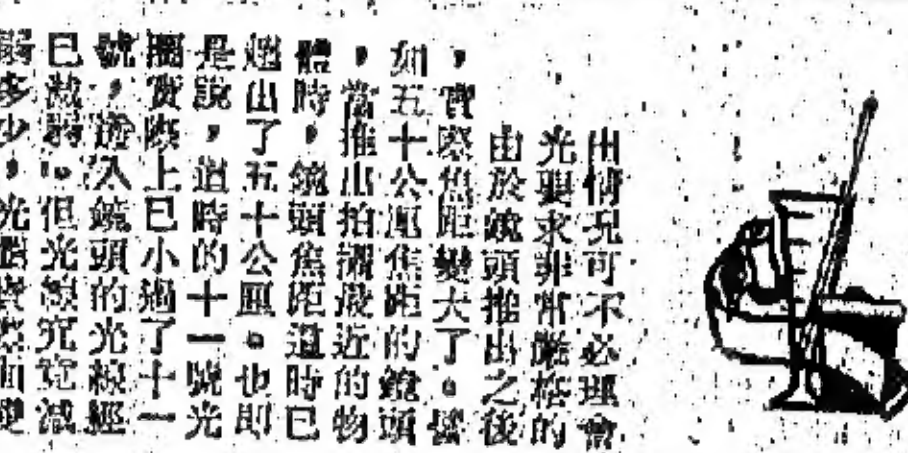 出情況可不必理會
光要求非常嚴格的
由於鏡頭推出之後
，實際焦距變大了。譬
如五十公厘焦距的鏡頭
，當推出拍攝最近的物
體時，鏡頭焦距這時已
超出了五十公厘。也即
是說，這時的十一號光
圈實際上已小過了十一
號，透入鏡頭的光線經
已減弱。但光線究竟減
弱多少，光